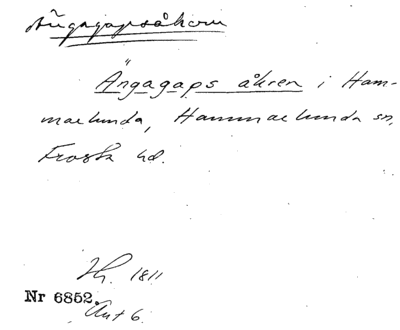 Ängagapsåkern
Ängagaps åkren i Ham-
marlunda, Hammarlunda sn,
Frosta hd.
Th. 1811
Nr 6852.
Ant 6.